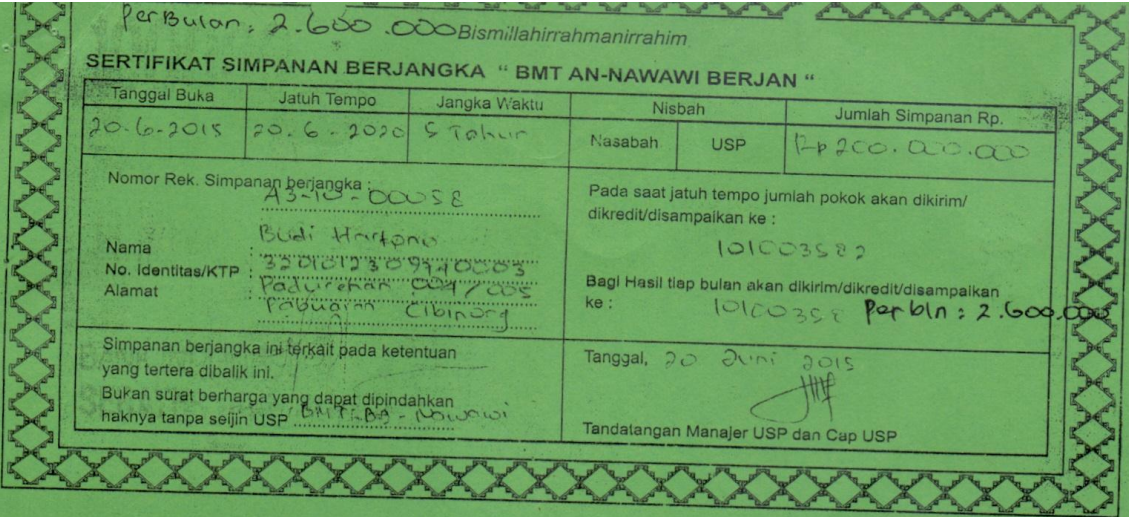 PerBulan : 2.600.000 Bismillahirrahmanirrahim
SERTIFIKAT SIMPANAN BERJANGKA “ BMT AN-NAWAWI BERJAN “
Tanggal Buka Jatuh Tempo Jangka Waktu Nisbah Jumlah Simpanan Rp.
20-6-2015 20.6-2020 5 Tahun Nasabah USP Rp 200.000.000
Nomor Rek. Simpanan berjangka :
A3-10-00058
Nama : Budi Hartono
No. Identitas/KTP :
Alamat : 004/005
Cibinong
Pada saat jatuh tempo jumlah pokok akan dikirim/
dikredit/disampaikan ke :
101003582
Bagi Hasil tiap bulan akan dikirim/dikredit/disampaikan
ke : Per bln : 2.600.000
Simpanan berjangka ini terkait pada ketentuan
yang tertera dibalik ini.
Bukan surat berharga yang dapat dipindahkan
haknya tanpa seijin USP
Tanggal, 20 Juni 2015
Tandatangan Manajer USP dan Cap USP